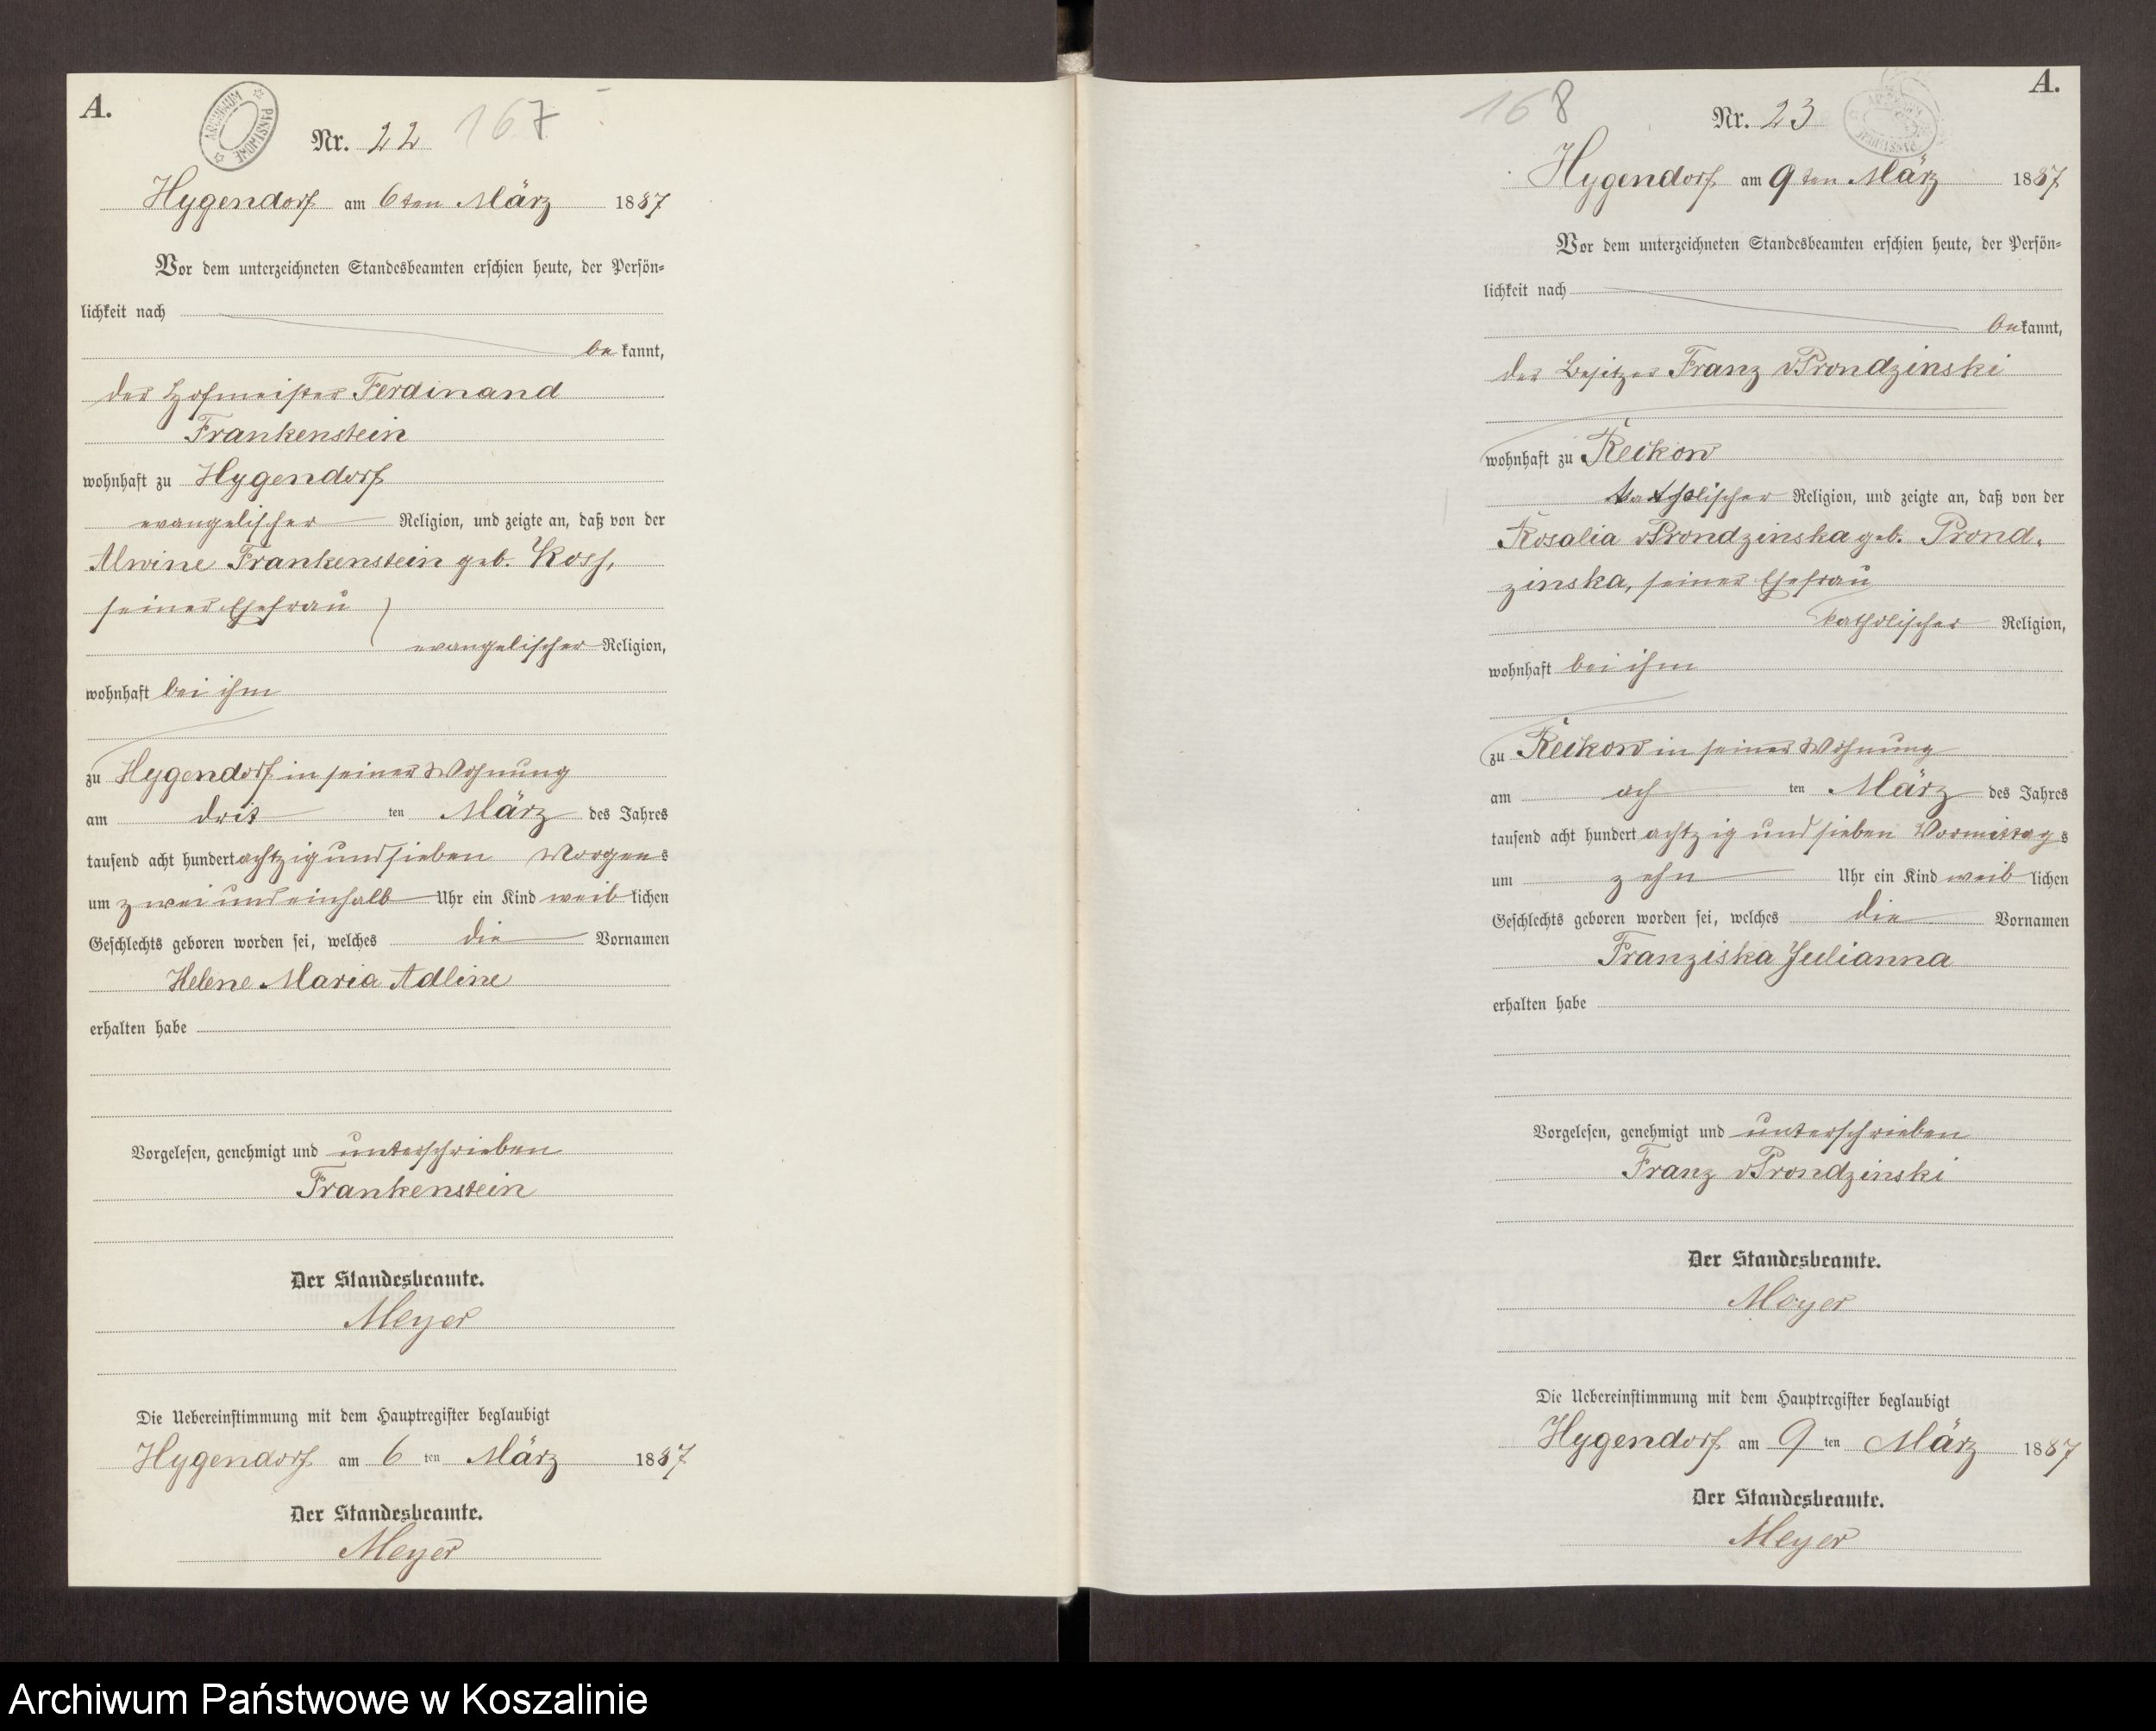 A.
ARCHIWUM PAŃSTWOWE
Nr. 22
167
Hygendorf am 6ten März 1887
Vor dem unterzeichneten Standesbeamten erschien heute, der Persön-
lichkeit nach
bekannt,
der Hofmeister Ferdinand
Frankenstein
wohnhaft zu Hygendorf
evangelischer Religion, und zeigte an, daß von der
Alwine Frankenstein geb. Koss,
seiner Ehefrau
evangelischer Religion,
wohnhaft bei ihm
zu Hygendorf in seiner Wohnung
am drit ten März des Jahres
tausend acht hundert achtzig und sieben Morgens
um zwei und einhalb Uhr ein Kind weiblichen
Geschlechts geboren worden sei, welches die Vornamen
Helene Maria Adline
erhalten habe
Vorgelesen, genehmigt und unterschrieben
Frankenstein
Der Standesbeamte.
Meyer
Die Uebereinstimmung mit dem Hauptregister beglaubigt
Hygendorf am 6 ten März 1887
Der Standesbeamte.
Meyer
A.
168
Nr. 23
Hygendorf am 9ten März 1887
Vor dem unterzeichneten Standesbeamten erschien heute, der Persön-
lichkeit nach
bekannt,
der Besitzer Franz vProndzinski
wohnhaft zu Reikow
katholischer Religion, und zeigte an, daß von der
Rosalia vProndzinska geb. Prond-
zinska, seiner Ehefrau
katholischer Religion,
wohnhaft bei ihm
zu Reikow in seiner Wohnung
am ach ten März des Jahres
tausend acht hundert achtzig und sieben Vormittags
um zehn Uhr ein Kind weiblichen
Geschlechts geboren worden sei, welches die Vornamen
Franziska Julianna
erhalten habe
Vorgelesen, genehmigt und unterschrieben
Franz vProndzinski
Der Standesbeamte.
Meyer
Die Uebereinstimmung mit dem Hauptregister beglaubigt
Hygendorf am 9 ten März 1887
Der Standesbeamte.
Meyer
Archiwum Państwowe w Koszalinie